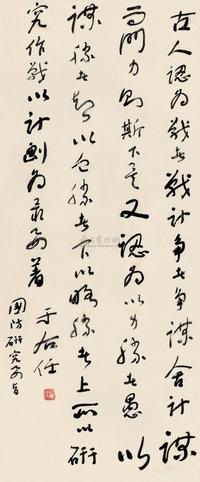 古人認為戰者戰計爭者爭謀舍計謀
而鬥力則斯下矣又認為以力勝者愚以
謀勝者智以勝者下以略勝者上所以研
究作戰以計劃為最要著
國防研究要旨
于右任